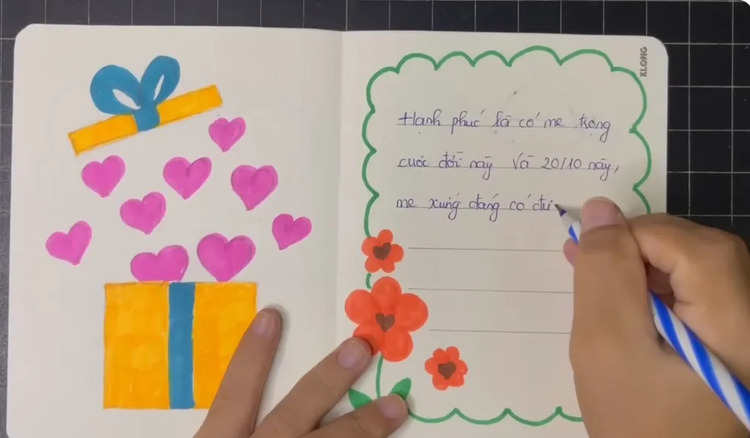 Hạnh phúc là có mẹ trong
cuộc đời này Và 20/10 này,
mẹ xứng đáng có đư
KLONG